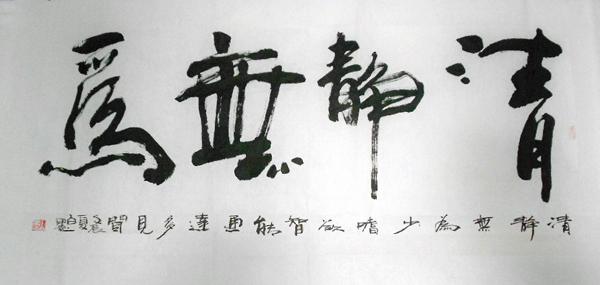 清静無為
清静無為少嗜欲智能通達多見聞